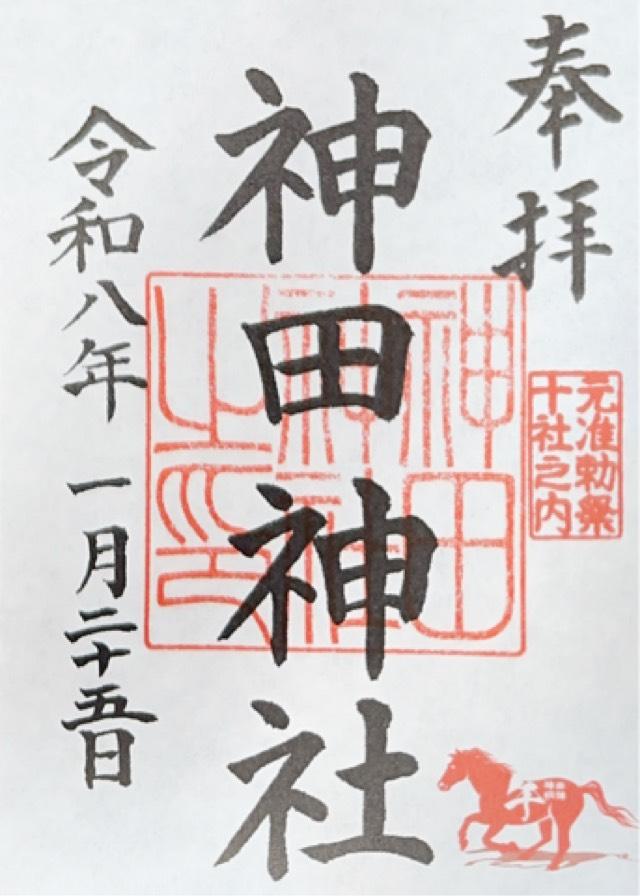 奉拝
元准勅祭
十社之内
神田神社
神田
神社
之印
令和八年 一月二十五日